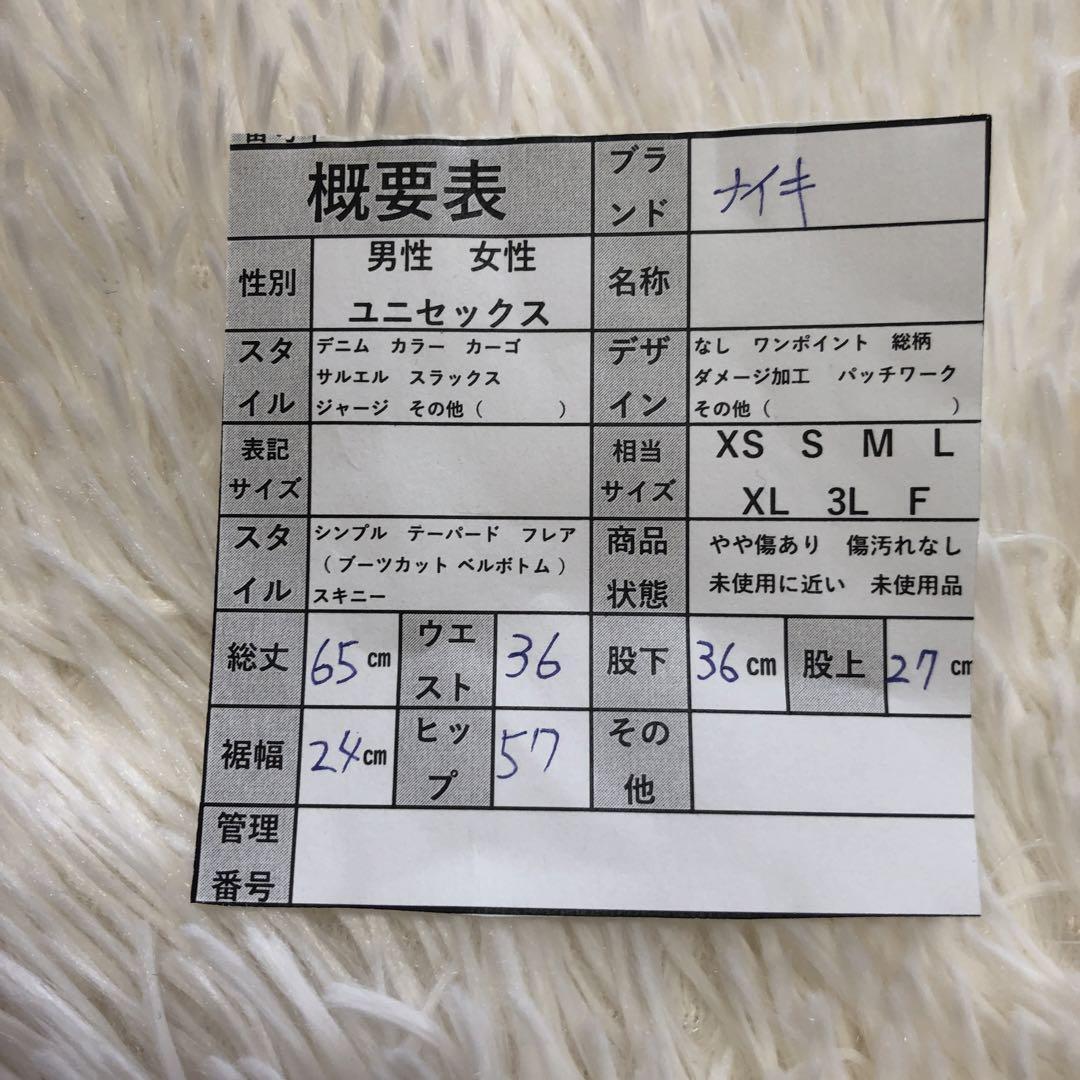 概要表 ブランド ナイキ
性別 男性 女性 ユニセックス 名称
スタイル デニム カラー カーゴ サルエル スラックス ジャージ その他（ ） デザイン なし ワンポイント 総柄 ダメージ加工 パッチワーク その他（ ）
表記サイズ 相当サイズ XS S M L XL 3L F
スタイル シンプル テーパード フレア （ブーツカット ベルボトム） スキニー 商品状態 やや傷あり 傷汚れなし 未使用に近い 未使用品
総丈 65cm ウエスト 36 股下 36cm 股上 27cm
裾幅 24cm ヒップ 57 その他
管理番号